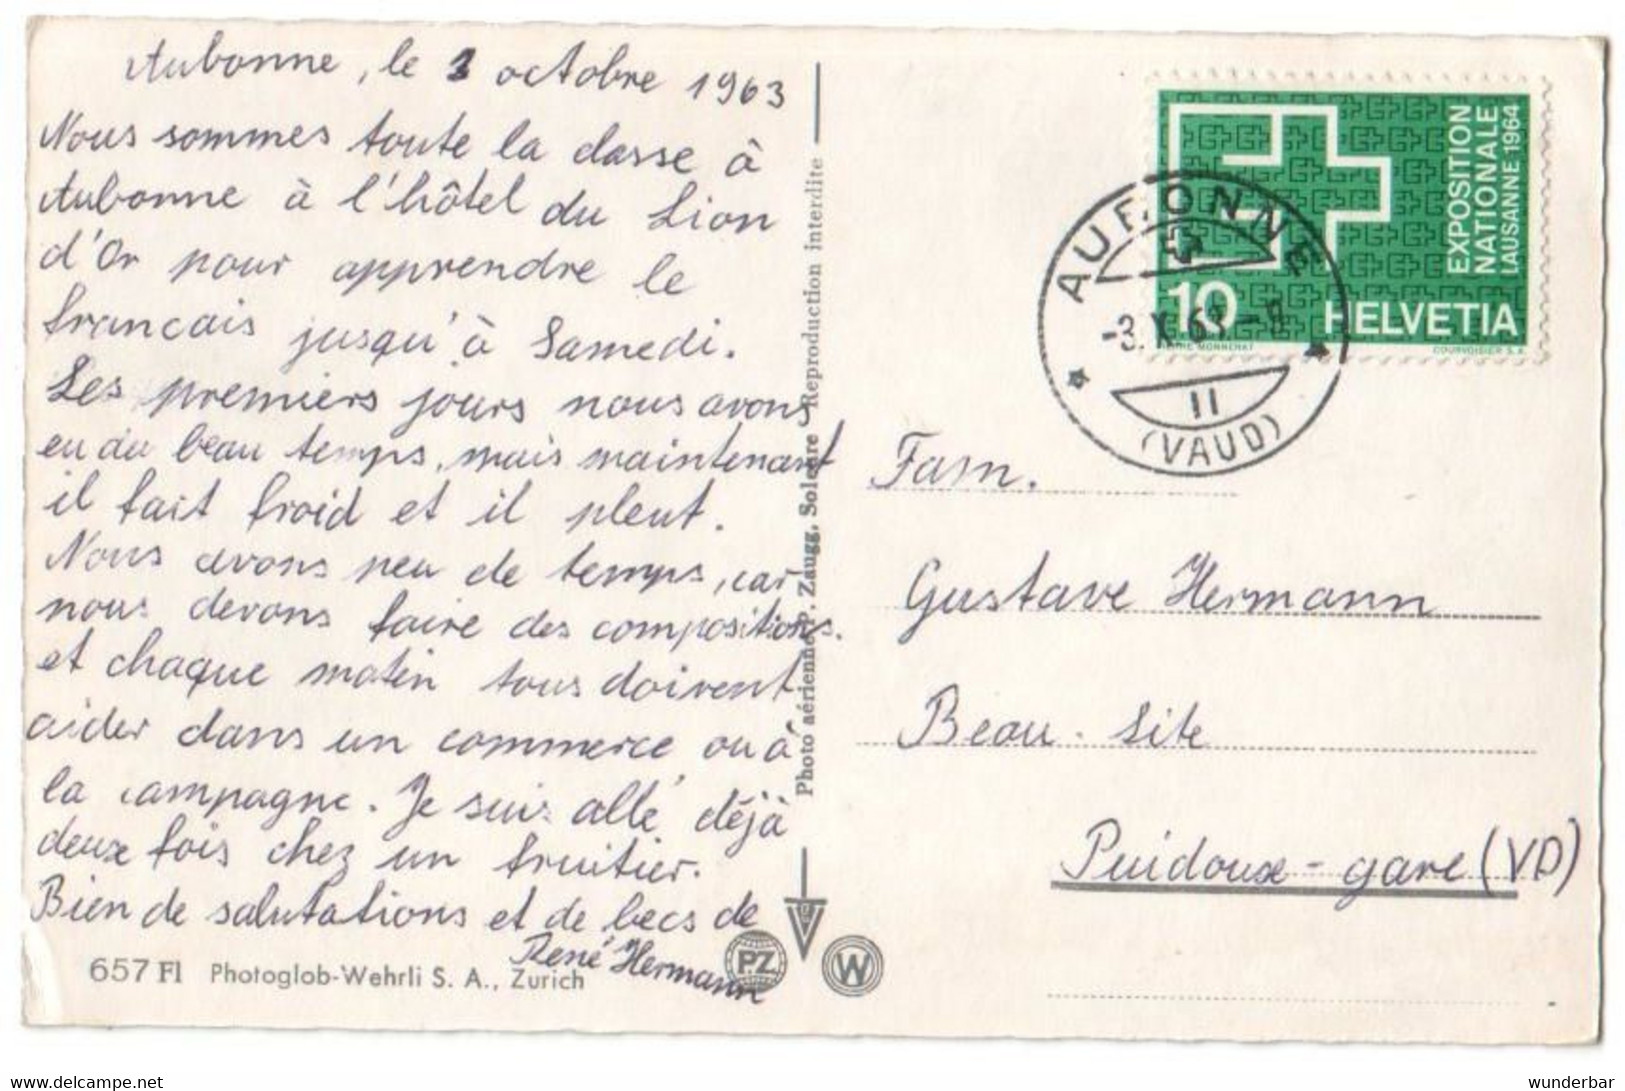 Aubonne, le 3 octobre 1963
Nous sommes toute la classe à
Aubonne à l'hôtel du Lion
d'Or pour apprendre le
francais jusqu'à Samedi.
Les premiers jours nous avons
eu du beau temps, mais maintenant
il fait froid et il pleut.
Nous avons peu de temps, car
nous devons faire des compositions.
et chaque matin tous doivent
aider dans un commerce ou à
la campagne. Je suis allé déjà
deux fois chez un fruitier.
Bien de salutations et de becs de
René Hermann
657 Fl Photoglob-Wehrli S. A., Zurich
Photo aérienne P. Zaugg, Soleure Reproduction interdite
PZ
W
EXPOSITION
NATIONALE
LAUSANNE 1964
10 HELVETIA
COURVOISIER S.A.
AUBONNE
-3.X.63.-8
II
(VAUD)
Fam.
Gustave Hermann
Beau-Site
Puidoux-gare (VD)
www.delcampe.net
wunderbar